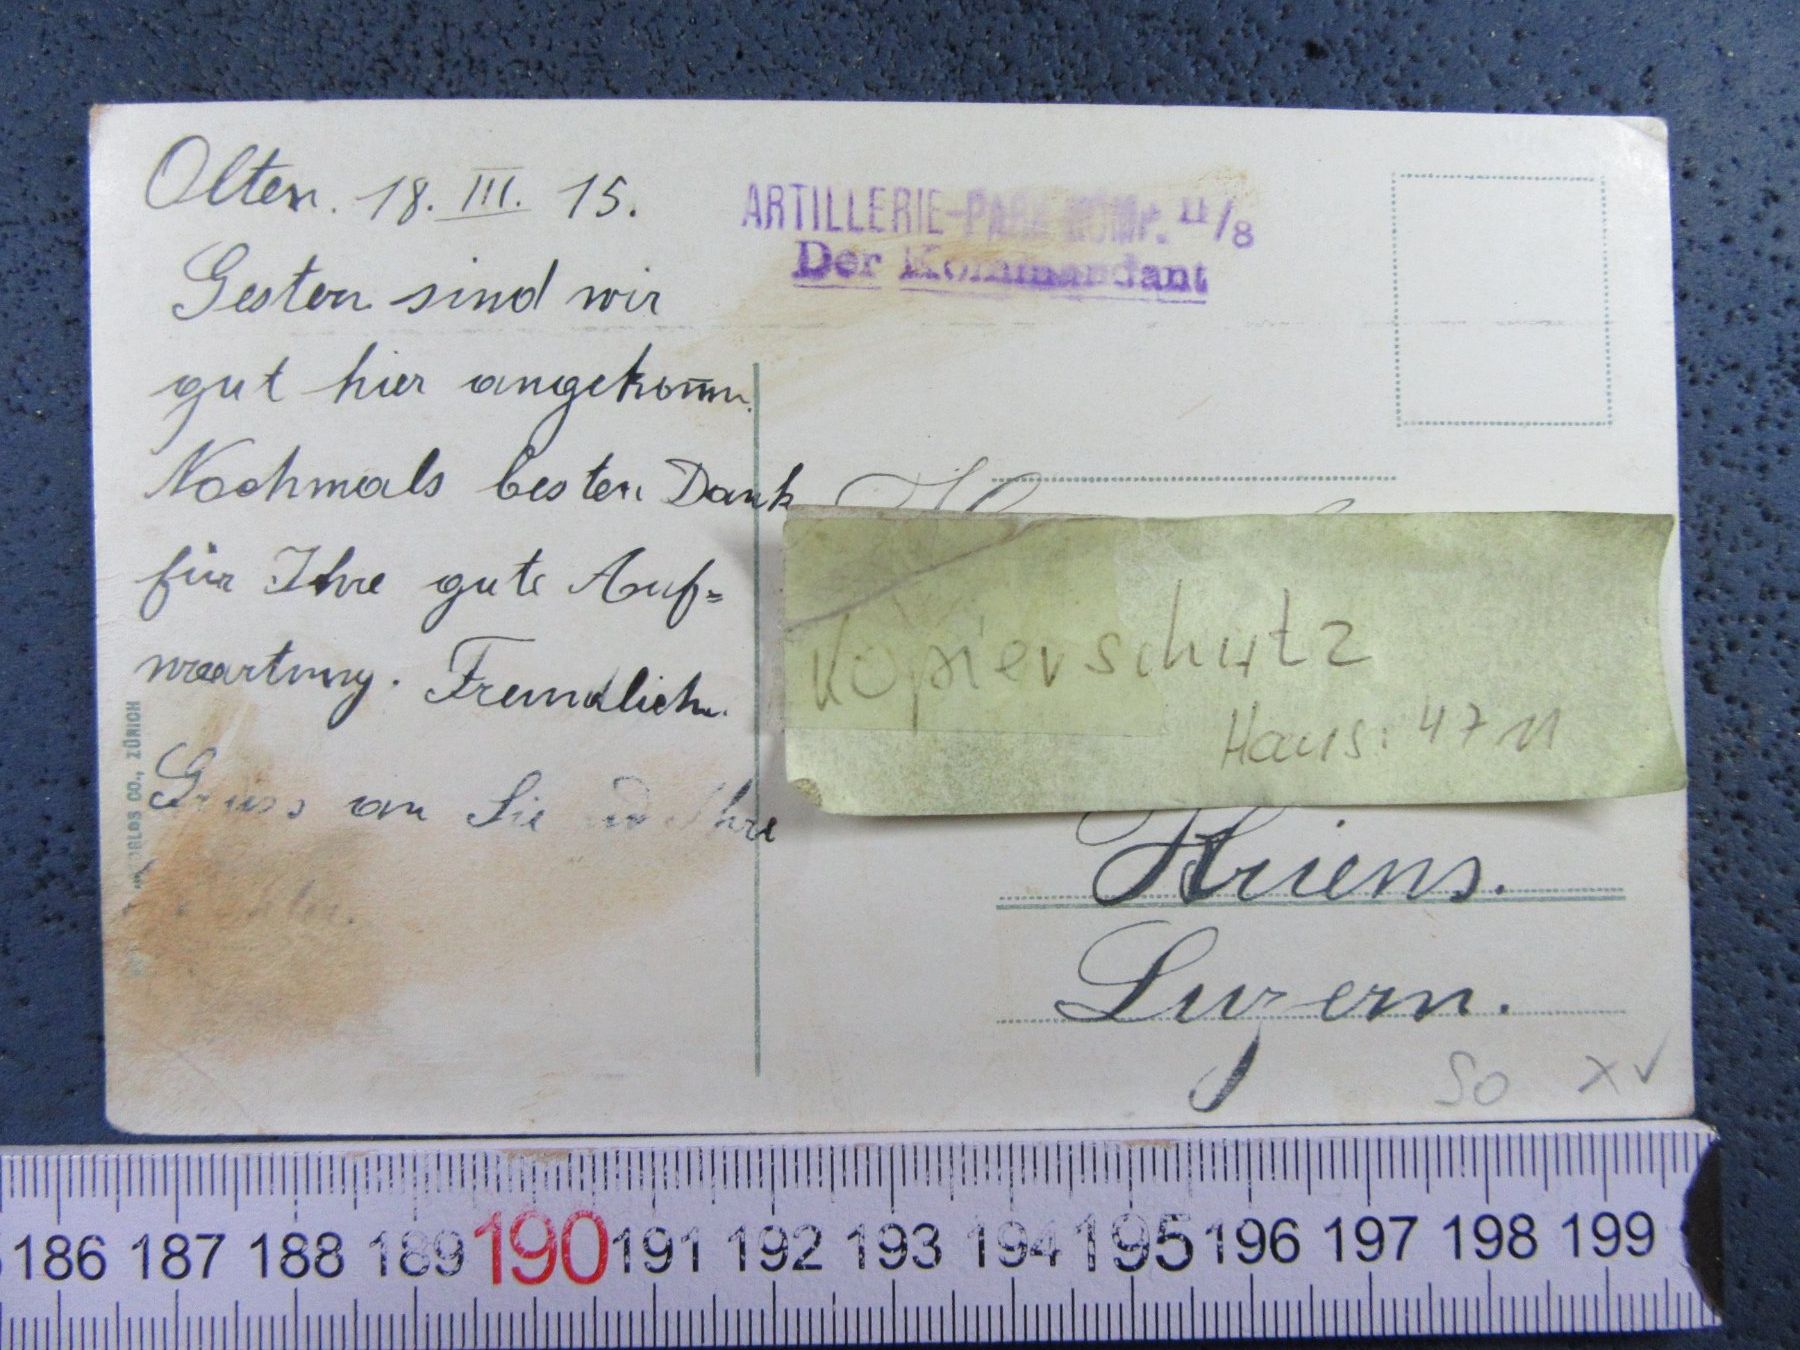 Olten. 18. III. 15.
Gestern sind wir
gut hier angekomm̅.
Nochmals besten Dank
für Ihre gute Auf=
wartung. Freundlich.
Gruss an Sie Ihre
ARTILLERIE-PARK KOMP. II/8
Der Kommandant
Kopierschutz
Hans: 4711
Kriens.
Luzern.
50 x ✓
CO., ZÜRICH
186 187 188 189 190 191 192 193 194 195 196 197 198 199